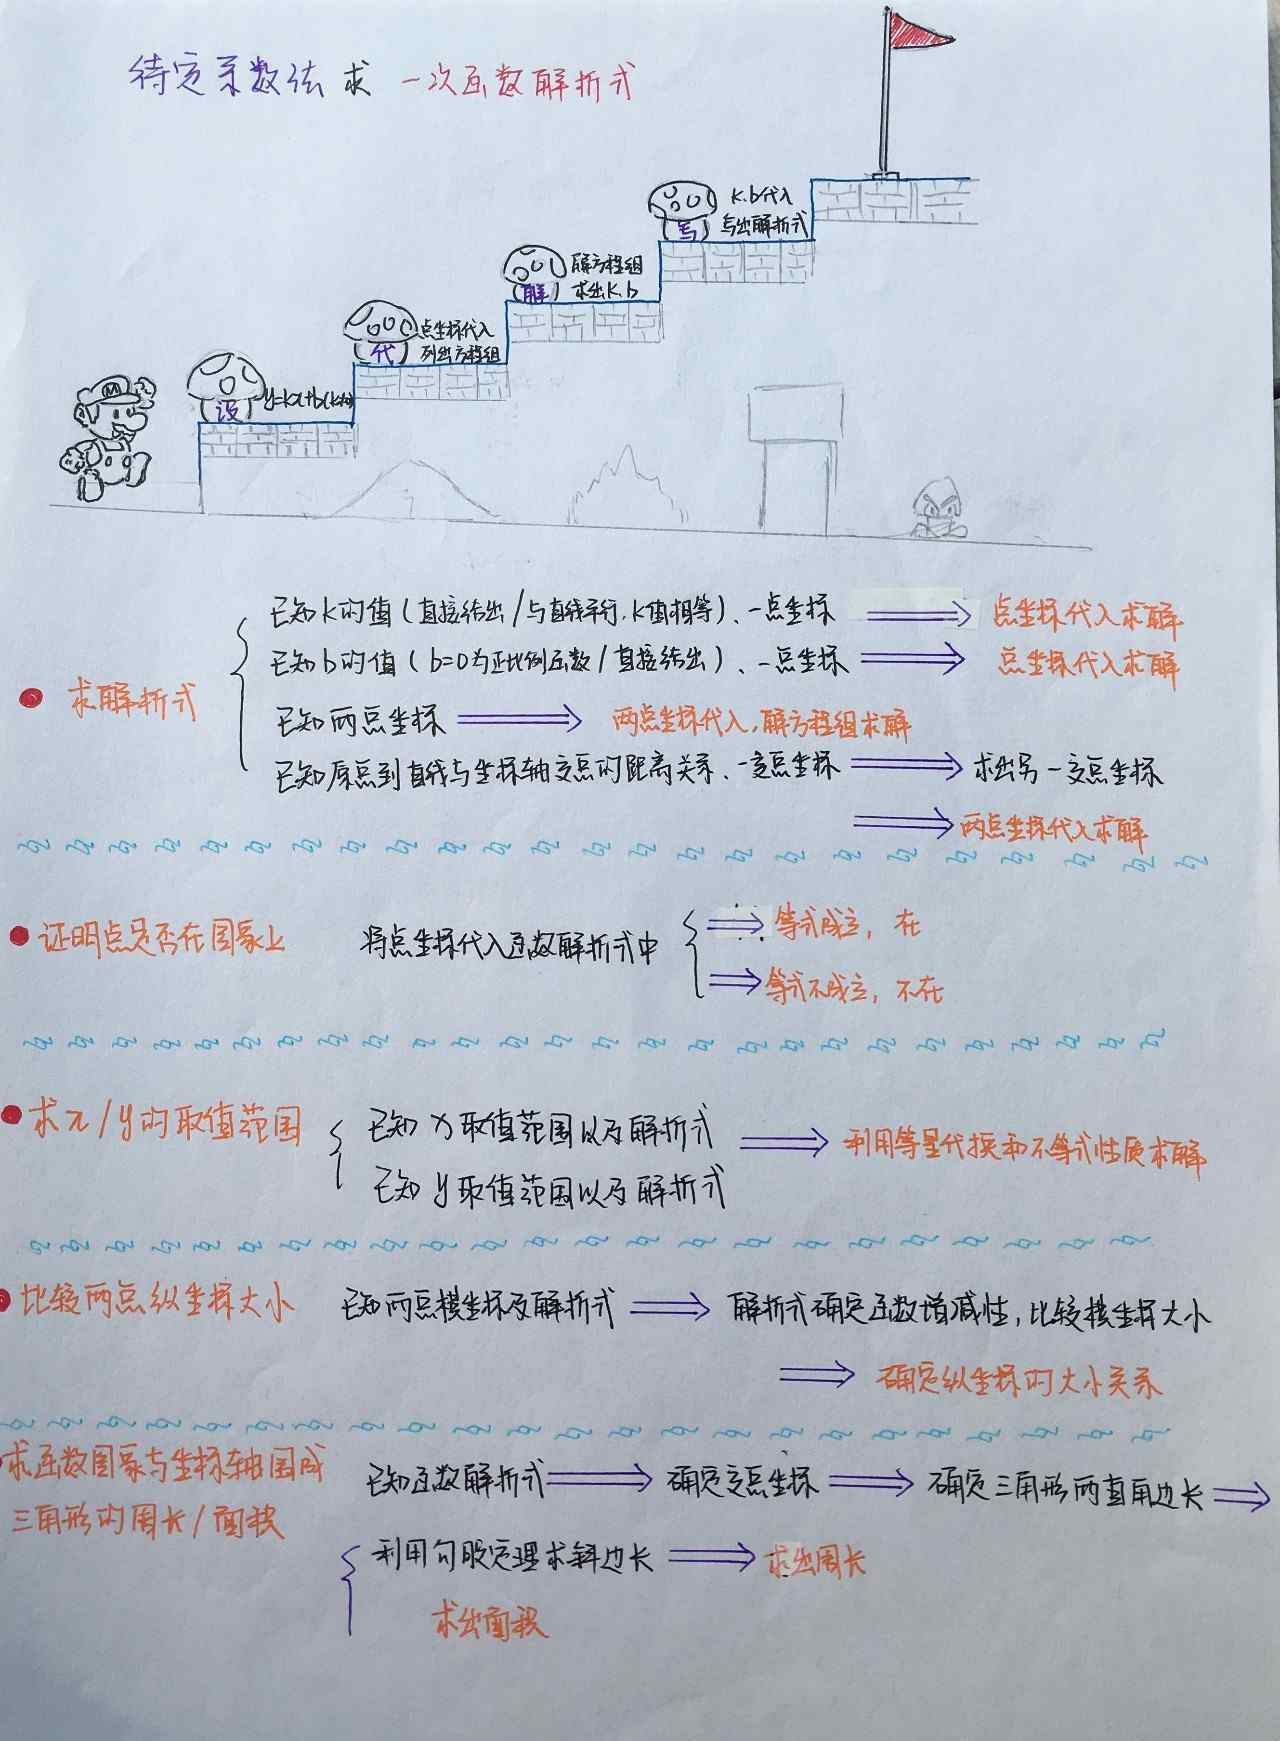 待定系数法求一次函数解析式
M
写 k.b代入
写出解析式
解 解方程组
求出k.b
代 点坐标代入
列出方程组
设 y=kx+b(k≠0)
已知k的值(直接给出/与直线平行,k值相等)、一点坐标 ⟹ 点坐标代入求解
已知b的值(b=0为正比例函数/直接给出)、一点坐标 ⟹ 点坐标代入求解
求解析式
已知两点坐标 ⟹ 两点坐标代入,解方程组求解
已知原点到直线与坐标轴交点的距离关系、一交点坐标 ⟹ 求出另一交点坐标
⟹ 两点坐标代入求解
证明点是否在图象上 将点坐标代入函数解析式中 ⟹ 等式成立,在
⟹ 等式不成立,不在
求x/y的取值范围 已知x取值范围以及解析式 ⟹ 利用等量代换和不等式性质求解
已知y取值范围以及解析式
比较两点纵坐标大小 已知两点横坐标及解析式 ⟹ 解析式确定函数增减性,比较横坐标大小
⟹ 确定纵坐标的大小关系
求函数图象与坐标轴围成 已知函数解析式 ⟹ 确定交点坐标 ⟹ 确定三角形两直角边长 ⟹
三角形的周长/面积
利用勾股定理求斜边长 ⟹ 求出周长
求出面积